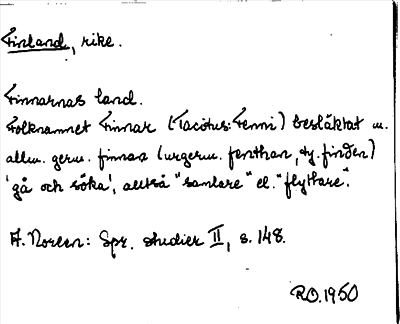 Finland, rike.
Finnarnas land.
Folknamnet Finnar (Tacitus: Fenni) besläktat m.
allm. germ. finnan (urgerm. fenthan, ty. finden)
'gå och söka', alltså "samlare" el. "flyttare".
A. Noreen: Spr. studier II, s. 148.
RO. 1950